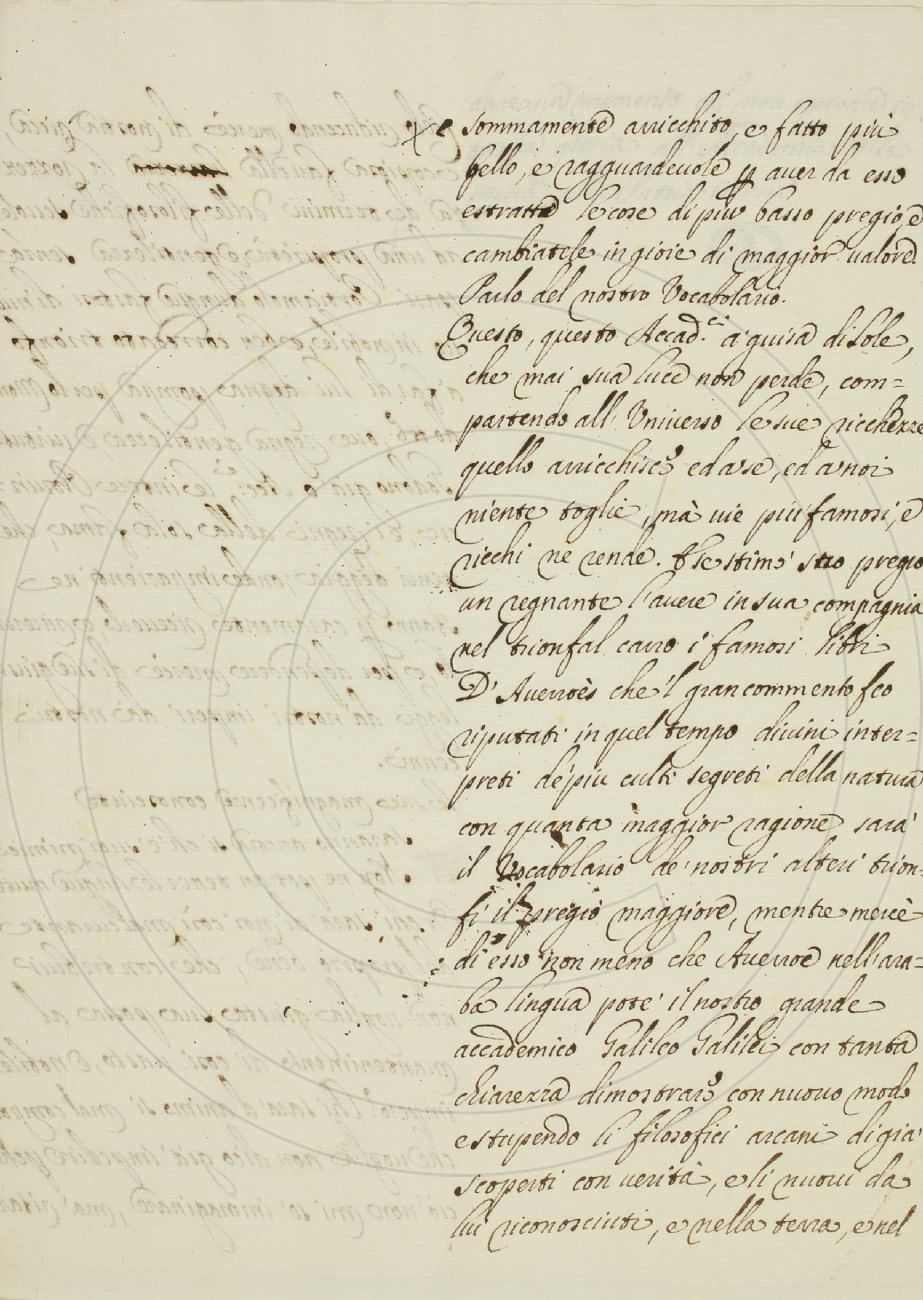 e sommamente arricchito, e fatto più
bello, e ragguardevole p aver da esso
estratte le cose di più basso pregio, e
cambiatele in gioie di maggior valore.
Parlo del nostro Vocabolario.
Questo, questo Accad.ci a' guisa di Sole,
che mai sua luce non perde, com=
partendo all' Universo le sue ricchezze
quello arricchisce, ed a' se, ed a' noi
niente toglie, mà vie più famosi, e
ricchi ne rende. Se stimò suo pregio
un regnante l'avere in sua compagnia
nel trionfal carro i famosi libri
D' Averroès che 'l gran commento feo
riputati in quel tempo divini inter=
preti de' più culti segreti della natura
con quanta maggior ragione sarà
il Vocabolario de' nostri alteri trion=
fi il pregio maggiore, mentre mercè
di esso non meno che Averroe nell'ara=
ba lingua potè il nostro grande
accademico Galileo Galilei con tanta
chiarezza dimostrare con nuovo modo
e stupendo li filosofici arcani di già
scoperti con verità, e li nuovi da
lui riconosciuti, e nella terra, e nel